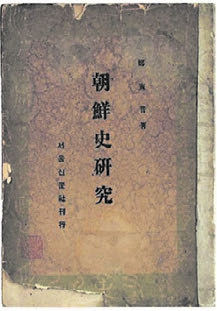 鄭寅普著
朝鮮史研究
서울신문社刊行